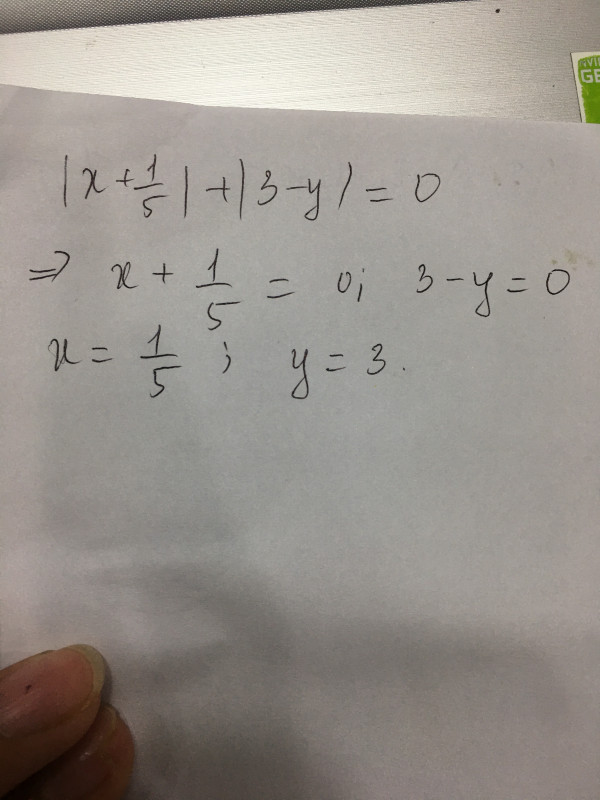 |x + 1/5| + |3 - y| = 0
⇒ x + 1/5 = 0; 3 - y = 0
x = 1/5 ; y = 3.